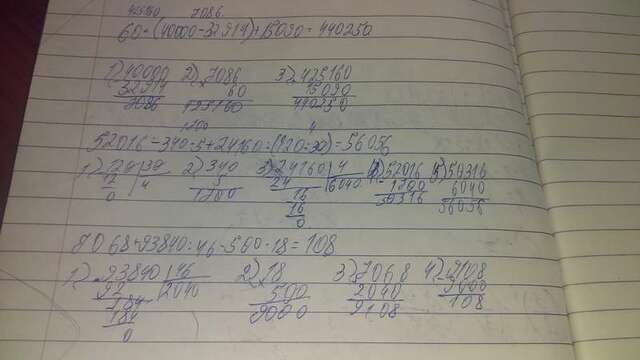 425160 7086
60·(40000-32914)+15090=440250
1) 40000 2) 7086 3) 425160
32914 60 15090
7086 425160 440250
1700 4
52016-340·5+24160:(120:30)=56056
1) 120 30 2) 340 3) 24160 4 4) 52016 5) 50316
12 4 5 24 6040 1700 6040
0 1700 16 50316 56056
16
0
7068+93840:46-500·18=108
1) 93840 46 2) 18 3) 7068 4) 9108
92 2040 500 2040 9000
184 9000 9108 108
184
0